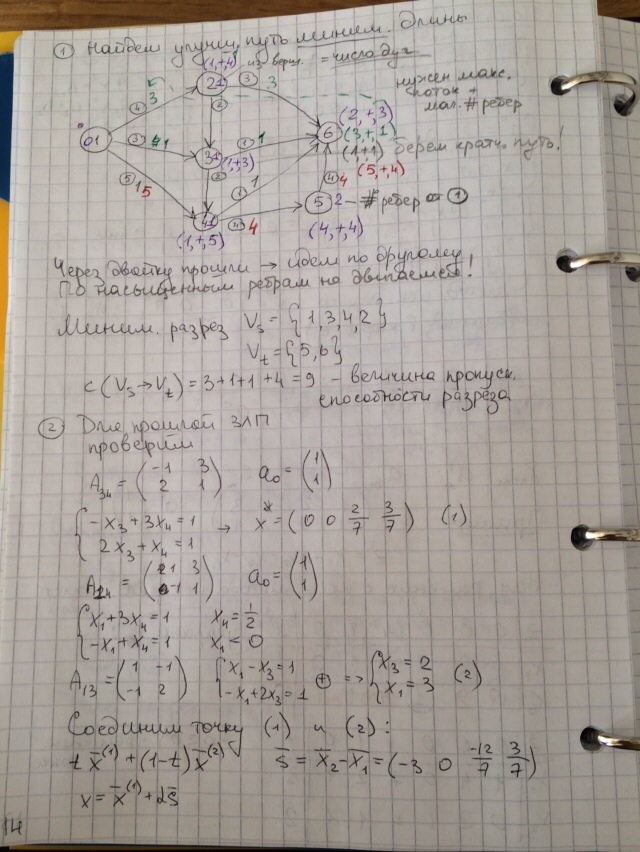 ① Найдем улучш. путь миним. длины
из верш. = число дуг
(1,+,4)
нужен макс.
поток +
мал. # ребер
④ 3 2 1 ③ 3
(2,+,3)
0 1 ③ 1 3 1 (1,+,3) ① 1 6 (3,+,1)
(1,+,1) берем кратч. путь!
⑤ 5 4 1 ① 1 ④ 4 (5,+,4)
(1,+,5) ④ 4 5 2 – # ребер от ①
(4,+,4)
Через двойку прошли → идем по другому
По насыщенным ребрам не двигаемся!
Миним. разрез V_s = {1,3,4,2}
V_t = {5,6}
c(V_s→V_t) = 3+1+1+4 = 9 – величина пропуск.
способности разреза
② Для прошлой ЗЛП
проверим
A_34 = (-1 3 / 2 1) a_0 = (1 / 1)
{ -x_3+3x_4=1 → x* = (0 0 2/7 3/7) (1)
2x_3+x_4=1
A_14 = (1 3 / -1 1) a_0 = (1 / 1)
{ x_1+3x_4=1 x_4 = 1/2
-x_1+x_4=1 x_1 < 0
A_13 = (1 -1 / -1 2) { x_1-x_3=1 / -x_1+2x_3=1 ⊕ => { x_3=2 / x_1=3 (2)
Соединим точку (1) и (2):
t x̄^(1) + (1-t) x̄^(2) s̄ = x̄_2 - x̄_1 = (-3 0 -12/7 3/7)
x = x̄^(1) + αs̄
14